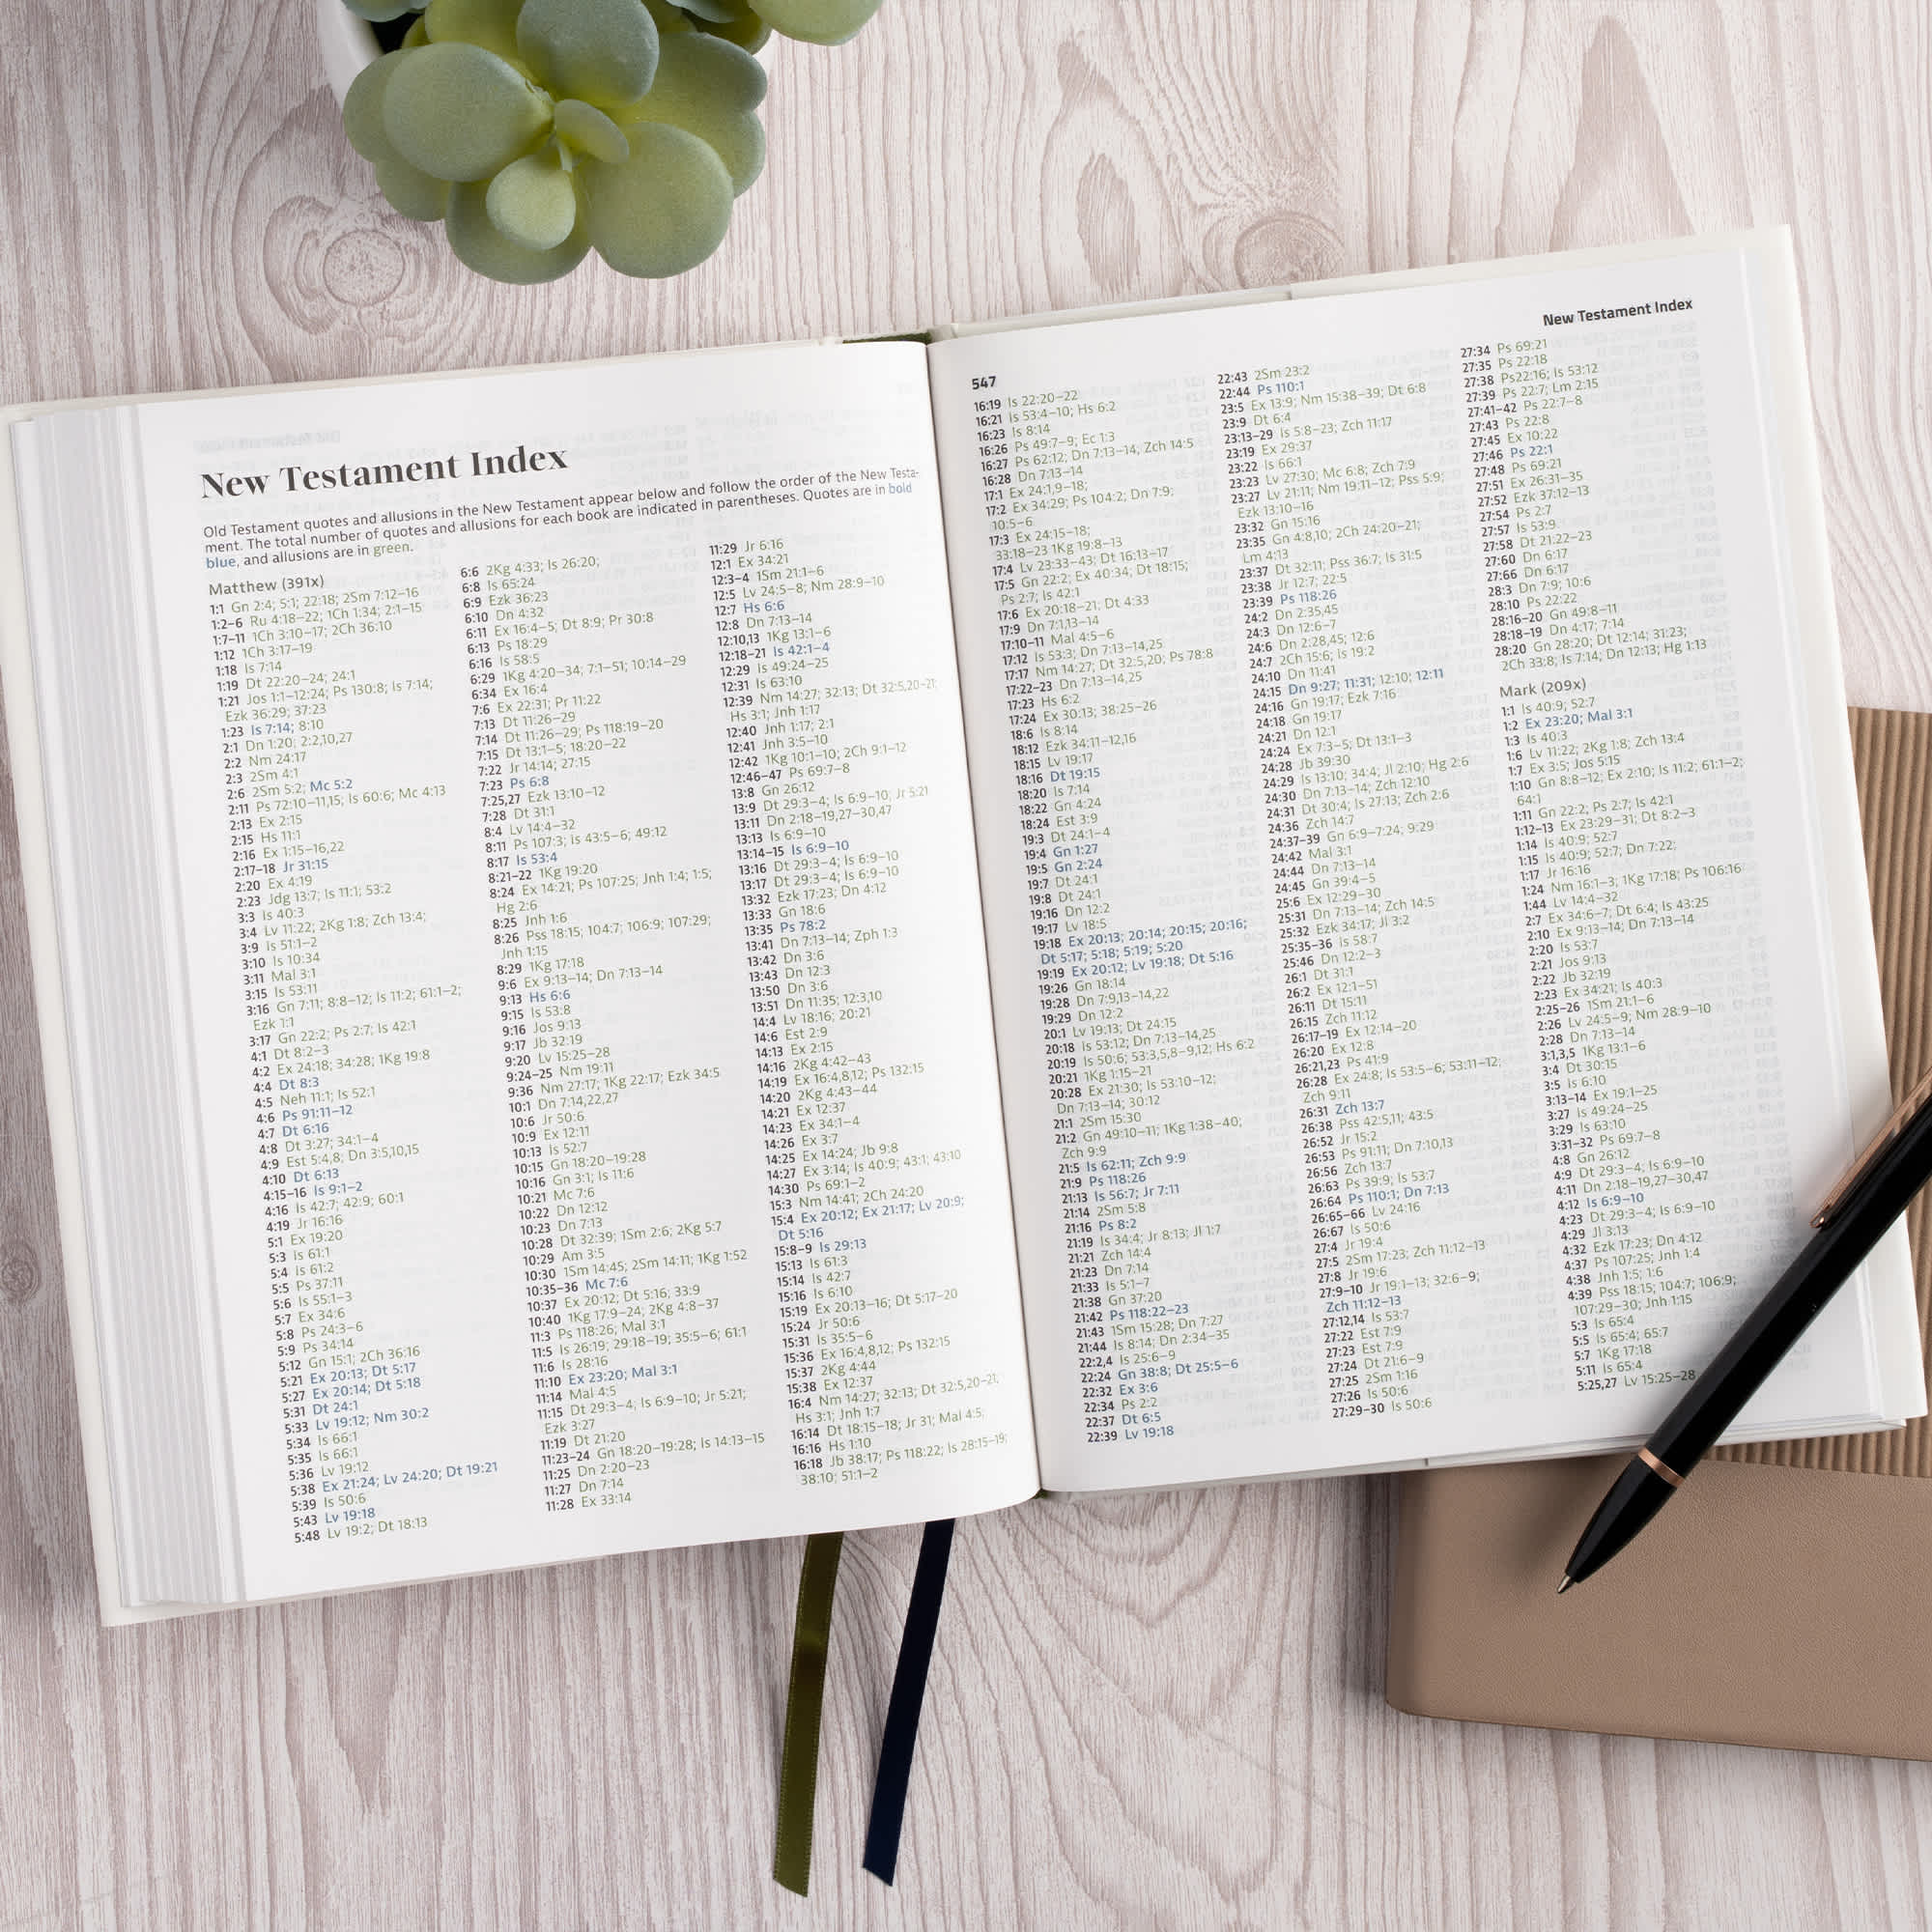 New Testament Index
Old Testament quotes and allusions in the New Testament appear below and follow the order of the New Testa-
ment. The total number of quotes and allusions for each book are indicated in parentheses. Quotes are in bold
blue, and allusions are in green.
Matthew (391x)
1:1 Gn 2:4; 5:1; 22:18; 2Sm 7:12–16
1:2–6 Ru 4:18–22; 1Ch 1:34; 2:1–15
1:7–11 1Ch 3:10–17; 2Ch 36:10
1:12 1Ch 3:17–19
1:18 Is 7:14
1:19 Dt 22:20–24; 24:1
1:21 Jos 1:1–12:24; Ps 130:8; Is 7:14;
Ezk 36:29; 37:23
1:23 Is 7:14; 8:10
2:1 Dn 1:20; 2:2,10,27
2:2 Nm 24:17
2:3 2Sm 4:1
2:6 2Sm 5:2; Mc 5:2
2:11 Ps 72:10–11,15; Is 60:6; Mc 4:13
2:13 Ex 2:15
2:15 Hs 11:1
2:16 Ex 1:15–16,22
2:17–18 Jr 31:15
2:20 Ex 4:19
2:23 Jdg 13:7; Is 11:1; 53:2
3:3 Is 40:3
3:4 Lv 11:22; 2Kg 1:8; Zch 13:4;
3:9 Is 51:1–2
3:10 Is 10:34
3:11 Mal 3:1
3:15 Is 53:11
3:16 Gn 7:11; 8:8–12; Is 11:2; 61:1–2;
Ezk 1:1
3:17 Gn 22:2; Ps 2:7; Is 42:1
4:1 Dt 8:2–3
4:2 Ex 24:18; 34:28; 1Kg 19:8
4:4 Dt 8:3
4:5 Neh 11:1; Is 52:1
4:6 Ps 91:11–12
4:7 Dt 6:16
4:8 Dt 3:27; 34:1–4
4:9 Est 5:4,8; Dn 3:5,10,15
4:10 Dt 6:13
4:15–16 Is 9:1–2
4:16 Is 42:7; 42:9; 60:1
4:19 Jr 16:16
5:1 Ex 19:20
5:3 Is 61:1
5:4 Is 61:2
5:5 Ps 37:11
5:6 Is 55:1–3
5:7 Ex 34:6
5:8 Ps 24:3–6
5:9 Ps 34:14
5:12 Gn 15:1; 2Ch 36:16
5:21 Ex 20:13; Dt 5:17
5:27 Ex 20:14; Dt 5:18
5:31 Dt 24:1
5:33 Lv 19:12; Nm 30:2
5:34 Is 66:1
5:35 Is 66:1
5:36 Lv 19:12
5:38 Ex 21:24; Lv 24:20; Dt 19:21
5:39 Is 50:6
5:43 Lv 19:18
5:48 Lv 19:2; Dt 18:13
6:6 2Kg 4:33; Is 26:20;
6:8 Is 65:24
6:9 Ezk 36:23
6:10 Dn 4:32
6:11 Ex 16:4–5; Dt 8:9; Pr 30:8
6:13 Ps 18:29
6:16 Is 58:5
6:29 1Kg 4:20–34; 7:1–51; 10:14–29
6:34 Ex 16:4
7:6 Ex 22:31; Pr 11:22
7:13 Dt 11:26–29
7:14 Dt 11:26–29; Ps 118:19–20
7:15 Dt 13:1–5; 18:20–22
7:22 Jr 14:14; 27:15
7:23 Ps 6:8
7:25,27 Ezk 13:10–12
7:28 Dt 31:1
8:4 Lv 14:4–32
8:11 Ps 107:3; Is 43:5–6; 49:12
8:17 Is 53:4
8:21–22 1Kg 19:20
8:24 Ex 14:21; Ps 107:25; Jnh 1:4; 1:5;
Hg 2:6
8:25 Jnh 1:6
8:26 Pss 18:15; 104:7; 106:9; 107:29;
Jnh 1:15
8:29 1Kg 17:18
9:6 Ex 9:13–14; Dn 7:13–14
9:13 Hs 6:6
9:15 Is 53:8
9:16 Jos 9:13
9:17 Jb 32:19
9:20 Lv 15:25–28
9:24–25 Nm 19:11
9:36 Nm 27:17; 1Kg 22:17; Ezk 34:5
10:1 Dn 7:14,22,27
10:6 Jr 50:6
10:9 Ex 12:11
10:13 Is 52:7
10:15 Gn 18:20–19:28
10:16 Gn 3:1; Is 11:6
10:21 Mc 7:6
10:22 Dn 12:12
10:23 Dn 7:13
10:28 Dt 32:39; 1Sm 2:6; 2Kg 5:7
10:29 Am 3:5
10:30 1Sm 14:45; 2Sm 14:11; 1Kg 1:52
10:35–36 Mc 7:6
10:37 Ex 20:12; Dt 5:16; 33:9
10:40 1Kg 17:9–24; 2Kg 4:8–37
11:3 Ps 118:26; Mal 3:1
11:5 Is 26:19; 29:18–19; 35:5–6; 61:1
11:6 Is 28:16
11:10 Ex 23:20; Mal 3:1
11:14 Mal 4:5
11:15 Dt 29:3–4; Is 6:9–10; Jr 5:21;
Ezk 3:27
11:19 Dt 21:20
11:23–24 Gn 18:20–19:28; Is 14:13–15
11:25 Dn 2:20–23
11:27 Dn 7:14
11:28 Ex 33:14
11:29 Jr 6:16
12:1 Ex 34:21
12:3–4 1Sm 21:1–6
12:5 Lv 24:5–8; Nm 28:9–10
12:7 Hs 6:6
12:8 Dn 7:13–14
12:10,13 1Kg 13:1–6
12:18–21 Is 42:1–4
12:29 Is 49:24–25
12:31 Is 63:10
12:39 Nm 14:27; 32:13; Dt 32:5,20–21;
Hs 3:1; Jnh 1:17
12:40 Jnh 1:17; 2:1
12:41 Jnh 3:5–10
12:42 1Kg 10:1–10; 2Ch 9:1–12
12:46–47 Ps 69:7–8
13:8 Gn 26:12
13:9 Dt 29:3–4; Is 6:9–10; Jr 5:21
13:11 Dn 2:18–19,27–30,47
13:13 Is 6:9–10
13:14–15 Is 6:9–10
13:16 Dt 29:3–4; Is 6:9–10
13:17 Dt 29:3–4; Is 6:9–10
13:32 Ezk 17:23; Dn 4:12
13:33 Gn 18:6
13:35 Ps 78:2
13:41 Dn 7:13–14; Zph 1:3
13:42 Dn 3:6
13:43 Dn 12:3
13:50 Dn 3:6
13:51 Dn 11:35; 12:3,10
14:4 Lv 18:16; 20:21
14:6 Est 2:9
14:13 Ex 2:15
14:16 2Kg 4:42–43
14:19 Ex 16:4,8,12; Ps 132:15
14:20 2Kg 4:43–44
14:21 Ex 12:37
14:23 Ex 34:1–4
14:26 Ex 3:7
14:25 Ex 14:24; Jb 9:8
14:27 Ex 3:14; Is 40:9; 43:1; 43:10
14:30 Ps 69:1–2
15:3 Nm 14:41; 2Ch 24:20
15:4 Ex 20:12; Ex 21:17; Lv 20:9;
Dt 5:16
15:8–9 Is 29:13
15:13 Is 61:3
15:14 Is 42:7
15:16 Is 6:10
15:19 Ex 20:13–16; Dt 5:17–20
15:24 Jr 50:6
15:31 Is 35:5–6
15:36 Ex 16:4,8,12; Ps 132:15
15:37 2Kg 4:44
15:38 Ex 12:37
16:4 Nm 14:27; 32:13; Dt 32:5,20–21,
Hs 3:1; Jnh 1:7
16:14 Dt 18:15–18; Jr 31; Mal 4:5;
16:16 Hs 1:10
16:18 Jb 38:17; Ps 118:22; Is 28:15–19;
38:10; 51:1–2
547
New Testament Index
16:19 Is 22:20–22
16:21 Is 53:4–10; Hs 6:2
16:23 Is 8:14
16:26 Ps 49:7–9; Ec 1:3
16:27 Ps 62:12; Dn 7:13–14; Zch 14:5
16:28 Dn 7:13–14
17:1 Ex 24:1,9–18;
17:2 Ex 34:29; Ps 104:2; Dn 7:9;
10:5–6
17:3 Ex 24:15–18;
33:18–23 1Kg 19:8–13
17:4 Lv 23:33–43; Dt 16:13–17
17:5 Gn 22:2; Ex 40:34; Dt 18:15;
Ps 2:7; Is 42:1
17:6 Ex 20:18–21; Dt 4:33
17:9 Dn 7:1,13–14
17:10–11 Mal 4:5–6
17:12 Is 53:3; Dn 7:13–14,25
17:17 Nm 14:27; Dt 32:5,20; Ps 78:8
17:22–23 Dn 7:13–14,25
17:23 Hs 6:2
17:24 Ex 30:13; 38:25–26
18:6 Is 8:14
18:12 Ezk 34:11–12,16
18:15 Lv 19:17
18:16 Dt 19:15
18:20 Is 7:14
18:22 Gn 4:24
18:24 Est 3:9
19:3 Dt 24:1–4
19:4 Gn 1:27
19:5 Gn 2:24
19:7 Dt 24:1
19:8 Dt 24:1
19:16 Dn 12:2
19:17 Lv 18:5
19:18 Ex 20:13; 20:14; 20:15; 20:16;
Dt 5:17; 5:18; 5:19; 5:20
19:19 Ex 20:12; Lv 19:18; Dt 5:16
19:26 Gn 18:14
19:28 Dn 7:9,13–14,22
19:29 Dn 12:2
20:1 Lv 19:13; Dt 24:15
20:18 Is 53:12; Dn 7:13–14,25
20:19 Is 50:6; 53:3,5,8–9,12; Hs 6:2
20:21 1Kg 1:15–21
20:28 Ex 21:30; Is 53:10–12;
Dn 7:13–14; 30:12
21:1 2Sm 15:30
21:2 Gn 49:10–11; 1Kg 1:38–40;
Zch 9:9
21:5 Is 62:11; Zch 9:9
21:9 Ps 118:26
21:13 Is 56:7; Jr 7:11
21:14 2Sm 5:8
21:16 Ps 8:2
21:19 Is 34:4; Jr 8:13; Jl 1:7
21:21 Zch 14:4
21:23 Dn 7:14
21:33 Is 5:1–7
21:38 Gn 37:20
21:42 Ps 118:22–23
21:43 1Sm 15:28; Dn 7:27
21:44 Is 8:14; Dn 2:34–35
22:2,4 Is 25:6–9
22:24 Gn 38:8; Dt 25:5–6
22:32 Ex 3:6
22:34 Ps 2:2
22:37 Dt 6:5
22:39 Lv 19:18
22:43 2Sm 23:2
22:44 Ps 110:1
23:5 Ex 13:9; Nm 15:38–39; Dt 6:8
23:9 Dt 6:4
23:13–29 Is 5:8–23; Zch 11:17
23:19 Ex 29:37
23:22 Is 66:1
23:23 Lv 27:30; Mc 6:8; Zch 7:9
23:27 Lv 21:11; Nm 19:11–12; Pss 5:9;
Ezk 13:10–16
23:32 Gn 15:16
23:35 Gn 4:8,10; 2Ch 24:20–21;
Lm 4:13
23:37 Dt 32:11; Pss 36:7; Is 31:5
23:38 Jr 12:7; 22:5
23:39 Ps 118:26
24:2 Dn 2:35,45
24:3 Dn 12:6–7
24:6 Dn 2:28,45; 12:6
24:7 2Ch 15:6; Is 19:2
24:10 Dn 11:41
24:15 Dn 9:27; 11:31; 12:10; 12:11
24:16 Gn 19:17; Ezk 7:16
24:18 Gn 19:17
24:21 Dn 12:1
24:24 Ex 7:3–5; Dt 13:1–3
24:28 Jb 39:30
24:29 Is 13:10; 34:4; Jl 2:10; Hg 2:6
24:30 Dn 7:13–14; Zch 12:10
24:31 Dt 30:4; Is 27:13; Zch 2:6
24:36 Zch 14:7
24:37–39 Gn 6:9–7:24; 9:29
24:42 Mal 3:1
24:44 Dn 7:13–14
24:45 Gn 39:4–5
25:6 Ex 12:29–30
25:31 Dn 7:13–14; Zch 14:5
25:32 Ezk 34:17; Jl 3:2
25:35–36 Is 58:7
25:46 Dn 12:2–3
26:1 Dt 31:1
26:2 Ex 12:1–51
26:11 Dt 15:11
26:15 Zch 11:12
26:17–19 Ex 12:14–20
26:20 Ex 12:8
26:21,23 Ps 41:9
26:28 Ex 24:8; Is 53:5–6; 53:11–12;
Zch 9:11
26:31 Zch 13:7
26:38 Pss 42:5,11; 43:5
26:52 Jr 15:2
26:53 Ps 91:11; Dn 7:10,13
26:56 Zch 13:7
26:63 Ps 39:9; Is 53:7
26:64 Ps 110:1; Dn 7:13
26:65–66 Lv 24:16
26:67 Is 50:6
27:4 Jr 19:4
27:5 2Sm 17:23; Zch 11:12–13
27:8 Jr 19:6
27:9–10 Jr 19:1–13; 32:6–9;
Zch 11:12–13
27:12,14 Is 53:7
27:22 Est 7:9
27:23 Est 7:9
27:24 Dt 21:6–9
27:25 2Sm 1:16
27:26 Is 50:6
27:29–30 Is 50:6
27:34 Ps 69:21
27:35 Ps 22:18
27:38 Ps22:16; Is 53:12
27:39 Ps 22:7; Lm 2:15
27:41–42 Ps 22:7–8
27:43 Ps 22:8
27:45 Ex 10:22
27:46 Ps 22:1
27:48 Ps 69:21
27:51 Ex 26:31–35
27:52 Ezk 37:12–13
27:54 Ps 2:7
27:57 Is 53:9
27:58 Dt 21:22–23
27:60 Dn 6:17
27:66 Dn 6:17
28:3 Dn 7:9; 10:6
28:10 Ps 22:22
28:16–20 Gn 49:8–11
28:18–19 Dn 4:17; 7:14
28:20 Gn 28:20; Dt 12:14; 31:23;
2Ch 33:8; Is 7:14; Dn 12:13; Hg 1:13
Mark (209x)
1:1 Is 40:9; 52:7
1:2 Ex 23:20; Mal 3:1
1:3 Is 40:3
1:6 Lv 11:22; 2Kg 1:8; Zch 13:4
1:7 Ex 3:5; Jos 5:15
1:10 Gn 8:8–12; Ex 2:10; Is 11:2; 61:1–2;
64:1
1:11 Gn 22:2; Ps 2:7; Is 42:1
1:12–13 Ex 23:29–31; Dt 8:2–3
1:14 Is 40:9; 52:7
1:15 Is 40:9; 52:7; Dn 7:22;
1:17 Jr 16:16
1:24 Nm 16:1–3; 1Kg 17:18; Ps 106:16
1:44 Lv 14:4–32
2:7 Ex 34:6–7; Dt 6:4; Is 43:25
2:10 Ex 9:13–14; Dn 7:13–14
2:20 Is 53:7
2:21 Jos 9:13
2:22 Jb 32:19
2:23 Ex 34:21; Is 40:3
2:25–26 1Sm 21:1–6
2:26 Lv 24:5–9; Nm 28:9–10
2:28 Dn 7:13–14
3:1,3,5 1Kg 13:1–6
3:4 Dt 30:15
3:5 Is 6:10
3:13–14 Ex 19:1–25
3:27 Is 49:24–25
3:29 Is 63:10
3:31–32 Ps 69:7–8
4:8 Gn 26:12
4:9 Dt 29:3–4; Is 6:9–10
4:11 Dn 2:18–19,27–30,47
4:12 Is 6:9–10
4:23 Dt 29:3–4; Is 6:9–10
4:29 Jl 3:13
4:32 Ezk 17:23; Dn 4:12
4:37 Ps 107:25; Jnh 1:4
4:38 Jnh 1:5; 1:6
4:39 Pss 18:15; 104:7; 106:9;
107:29–30; Jnh 1:15
5:3 Is 65:4
5:5 Is 65:4; 65:7
5:7 1Kg 17:18
5:11 Is 65:4
5:25,27 Lv 15:25–28